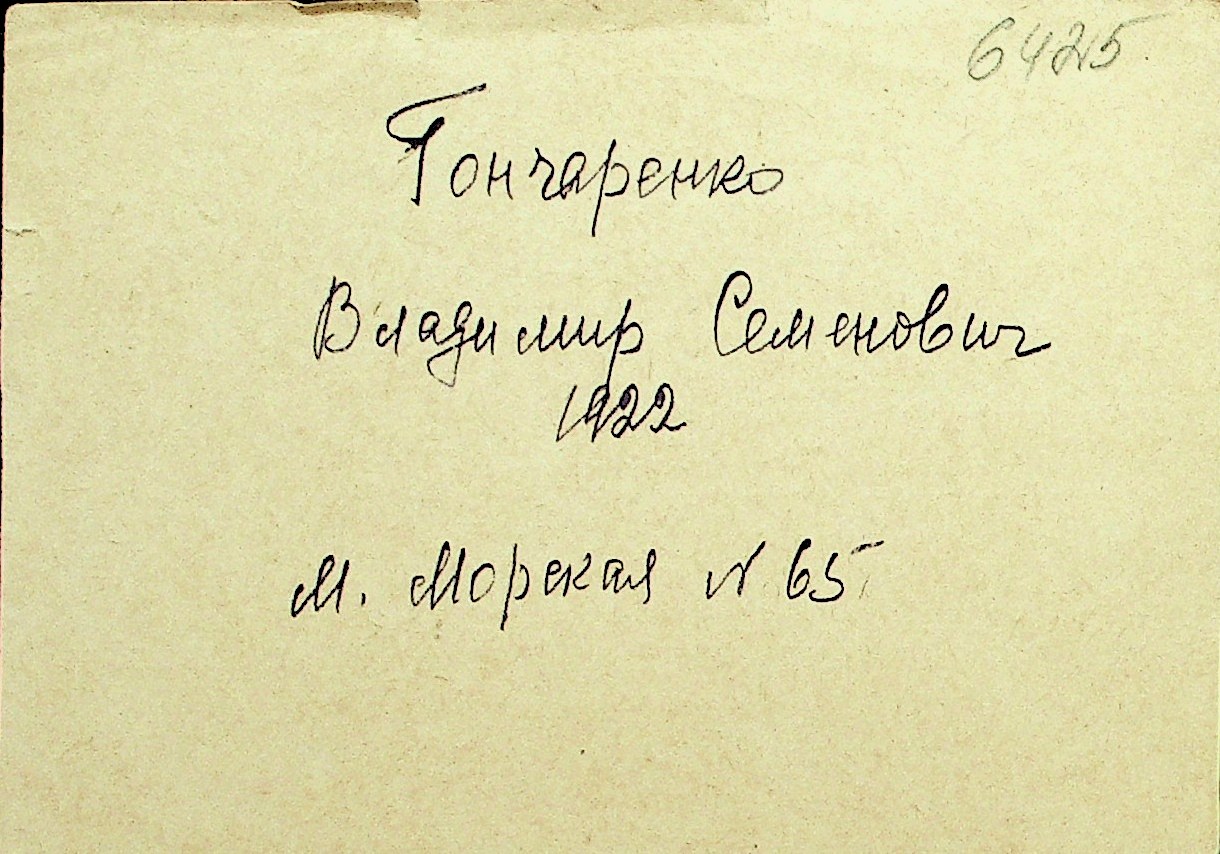 6425
Гончаренко
Владимир Семенович
1922
М. Морская N 65